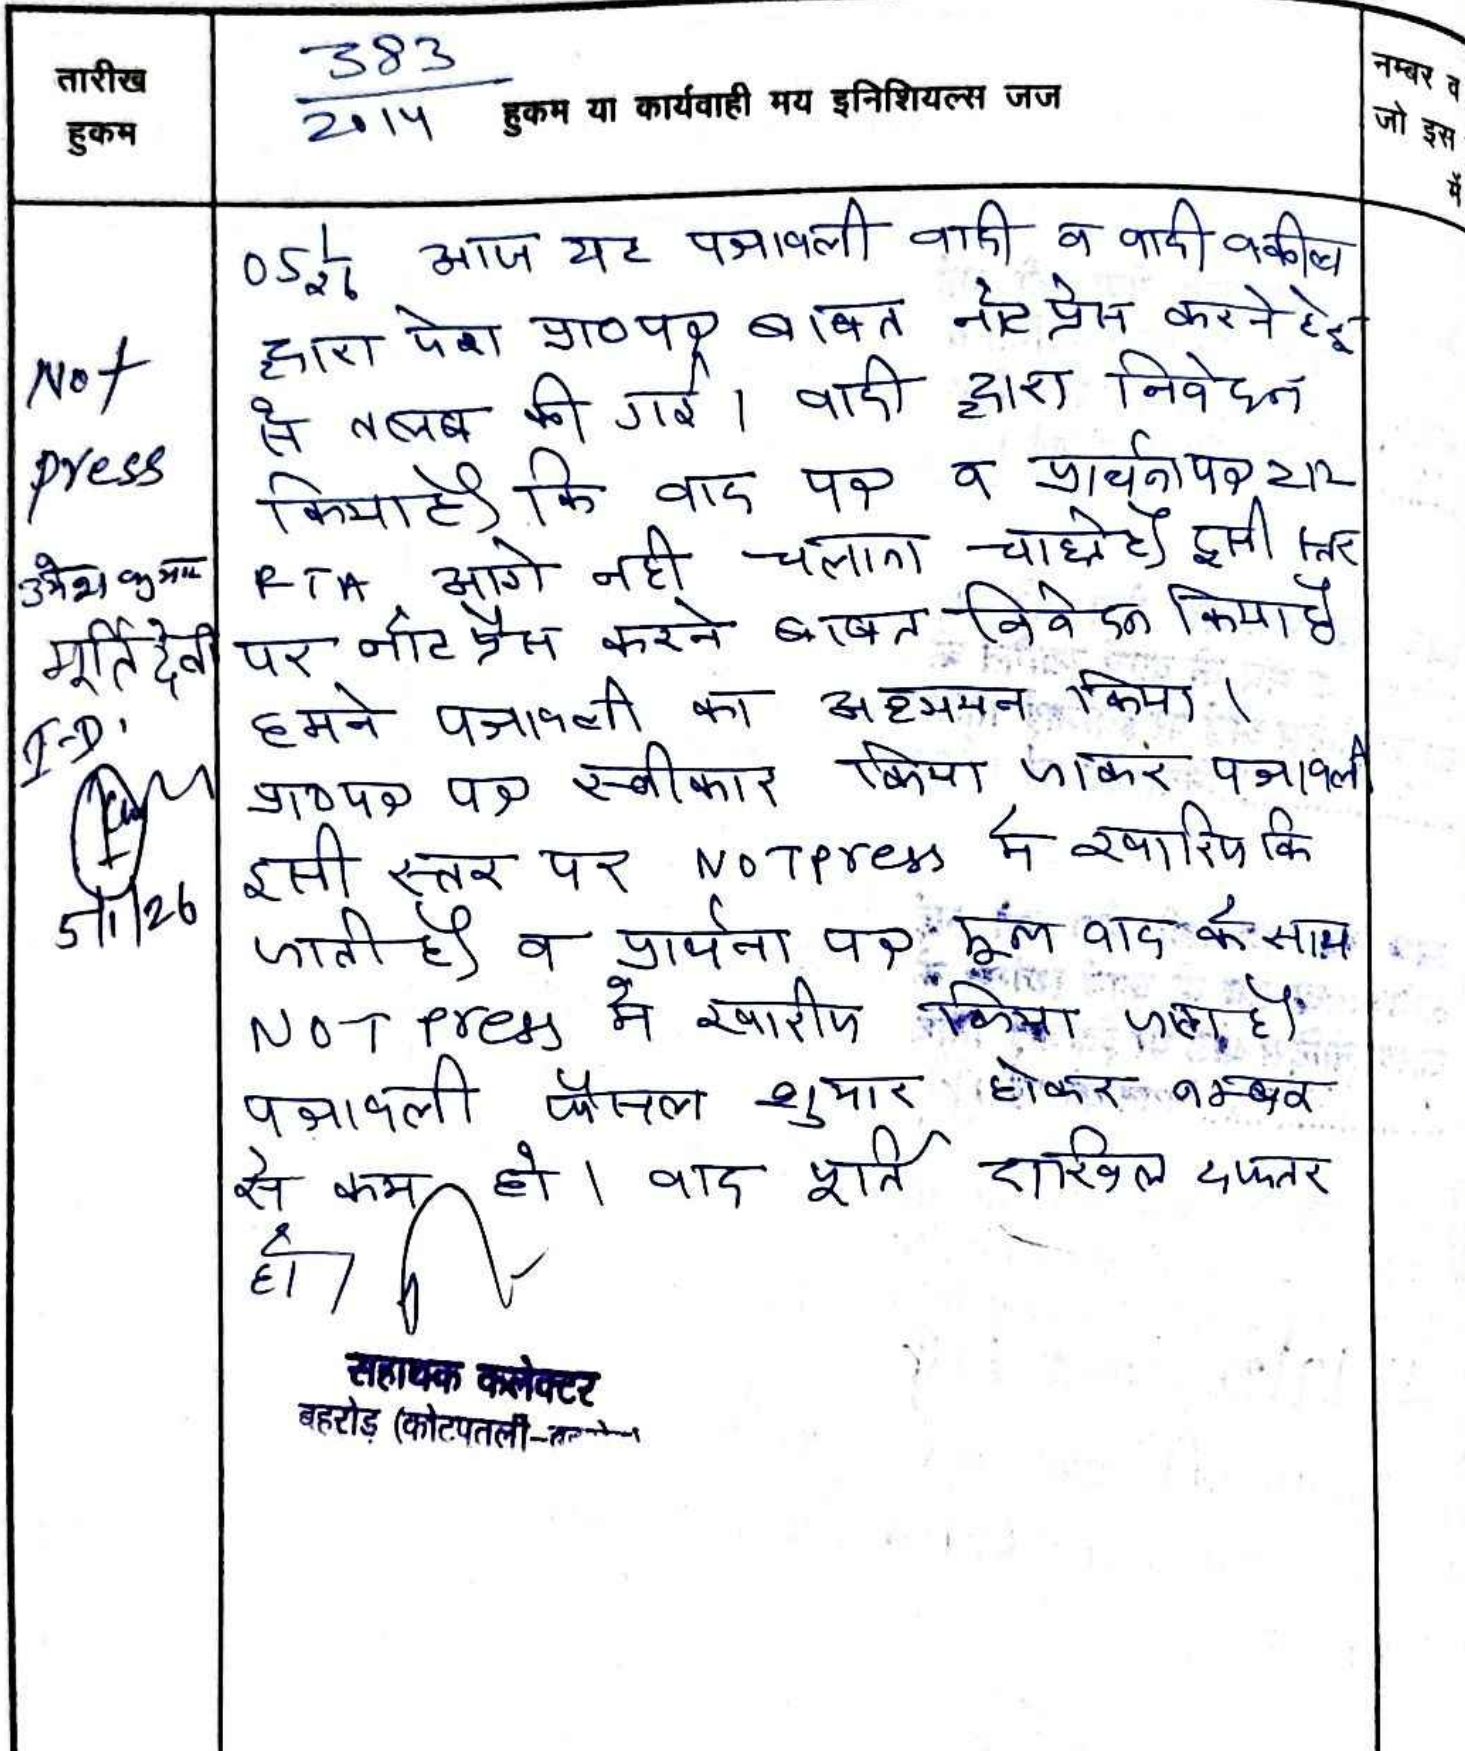 तारीख
हुकम
383
2014
हुकम या कार्यवाही मय इनिशियल्स जज
नम्बर व
जो इस
में
05/1/26 आज यह पत्रावली वादी व वादी वकील
द्वारा पेश प्रा०पत्र बाबत नोट प्रेस करने हेतु
से तलब की गई। वादी द्वारा निवेदन
किया है कि वाद पत्र व प्रार्थनापत्र 212
RTA आगे नही चलाना चाहते है इसी स्तर
पर नोट प्रैस करने बाबत निवेदन किया है
हमने पत्रावली का अध्ययन किया।
प्रा०पत्र पत्र स्वीकार किया जाकर पत्रावली
इसी स्तर पर NOT press मे खारिज कि
जाती है व प्रार्थना पत्र मूल वाद के साथ
NOT press मे खारीज किया जाता है
पत्रावली फैसल शुमार होकर नम्बर
से कम हो। वाद पूर्ति दाखिल दफ्तर
हो।
Not
press
उमेश कुमार
मूर्ति देवी
I-D'
5/1/26
सहायक कलेक्टर
बहरोड़ (कोटपूतली-